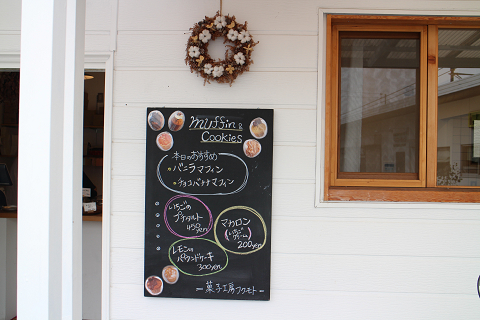 muffin &
Cookies
本日のおすすめ
・バニラマフィン
・チョコバナナマフィン
いちごの
プチタルト
450yen
マカロン
(いちご
クリーム)
200yen
レモンの
パウンドケーキ
300yen
ー 菓子工房フクモト ー